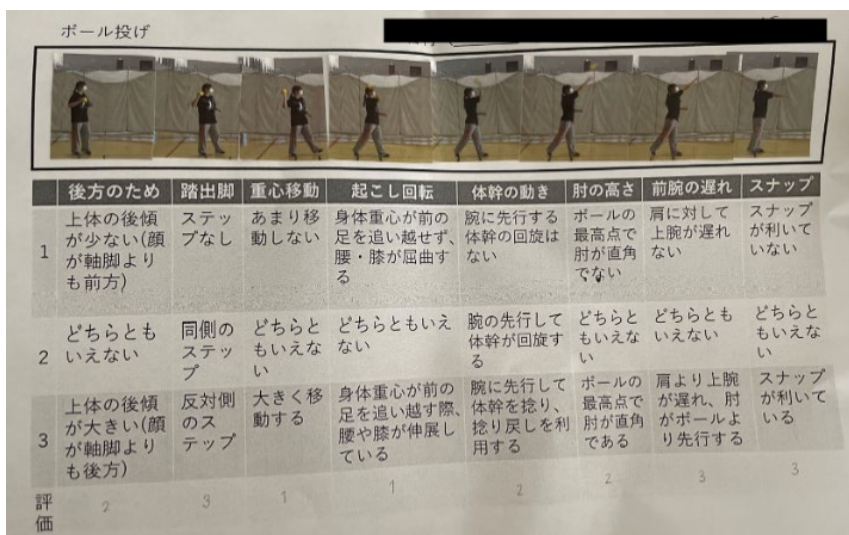 ボール投げ
後方のため 踏出脚 重心移動 起こし回転 体幹の動き 肘の高さ 前腕の遅れ スナップ
1
上体の後傾
が少ない(顔
が軸脚より
も前方)
ステッ
プなし
あまり移
動しない
身体重心が前の
足を追い越せず、
腰・膝が屈曲す
る
腕に先行する
体幹の回旋は
ない
ボールの
最高点で
肘が直角
でない
肩に対して
上腕が遅れ
ない
スナップ
が利いて
いない
2
どちらとも
いえない
同側の
ステッ
プ
どちらと
もいえな
い
どちらともいえ
ない
腕の先行して
体幹が回旋す
る
どちらと
もいえな
い
どちらとも
いえない
どちらと
もいえな
い
3
上体の後傾
が大きい(顔
が軸脚より
も後方)
反対側
のス
テップ
大きく移
動する
身体重心が前の
足を追い越す際、
腰や膝が伸展し
ている
腕に先行して
体幹を捻り、
捻り戻しを利
用する
ボールの
最高点で
肘が直角
である
肩より上腕
が遅れ、肘
がボールよ
り先行する
スナップ
が利いて
いる
評
価
2 3 1 1 2 2 3 3